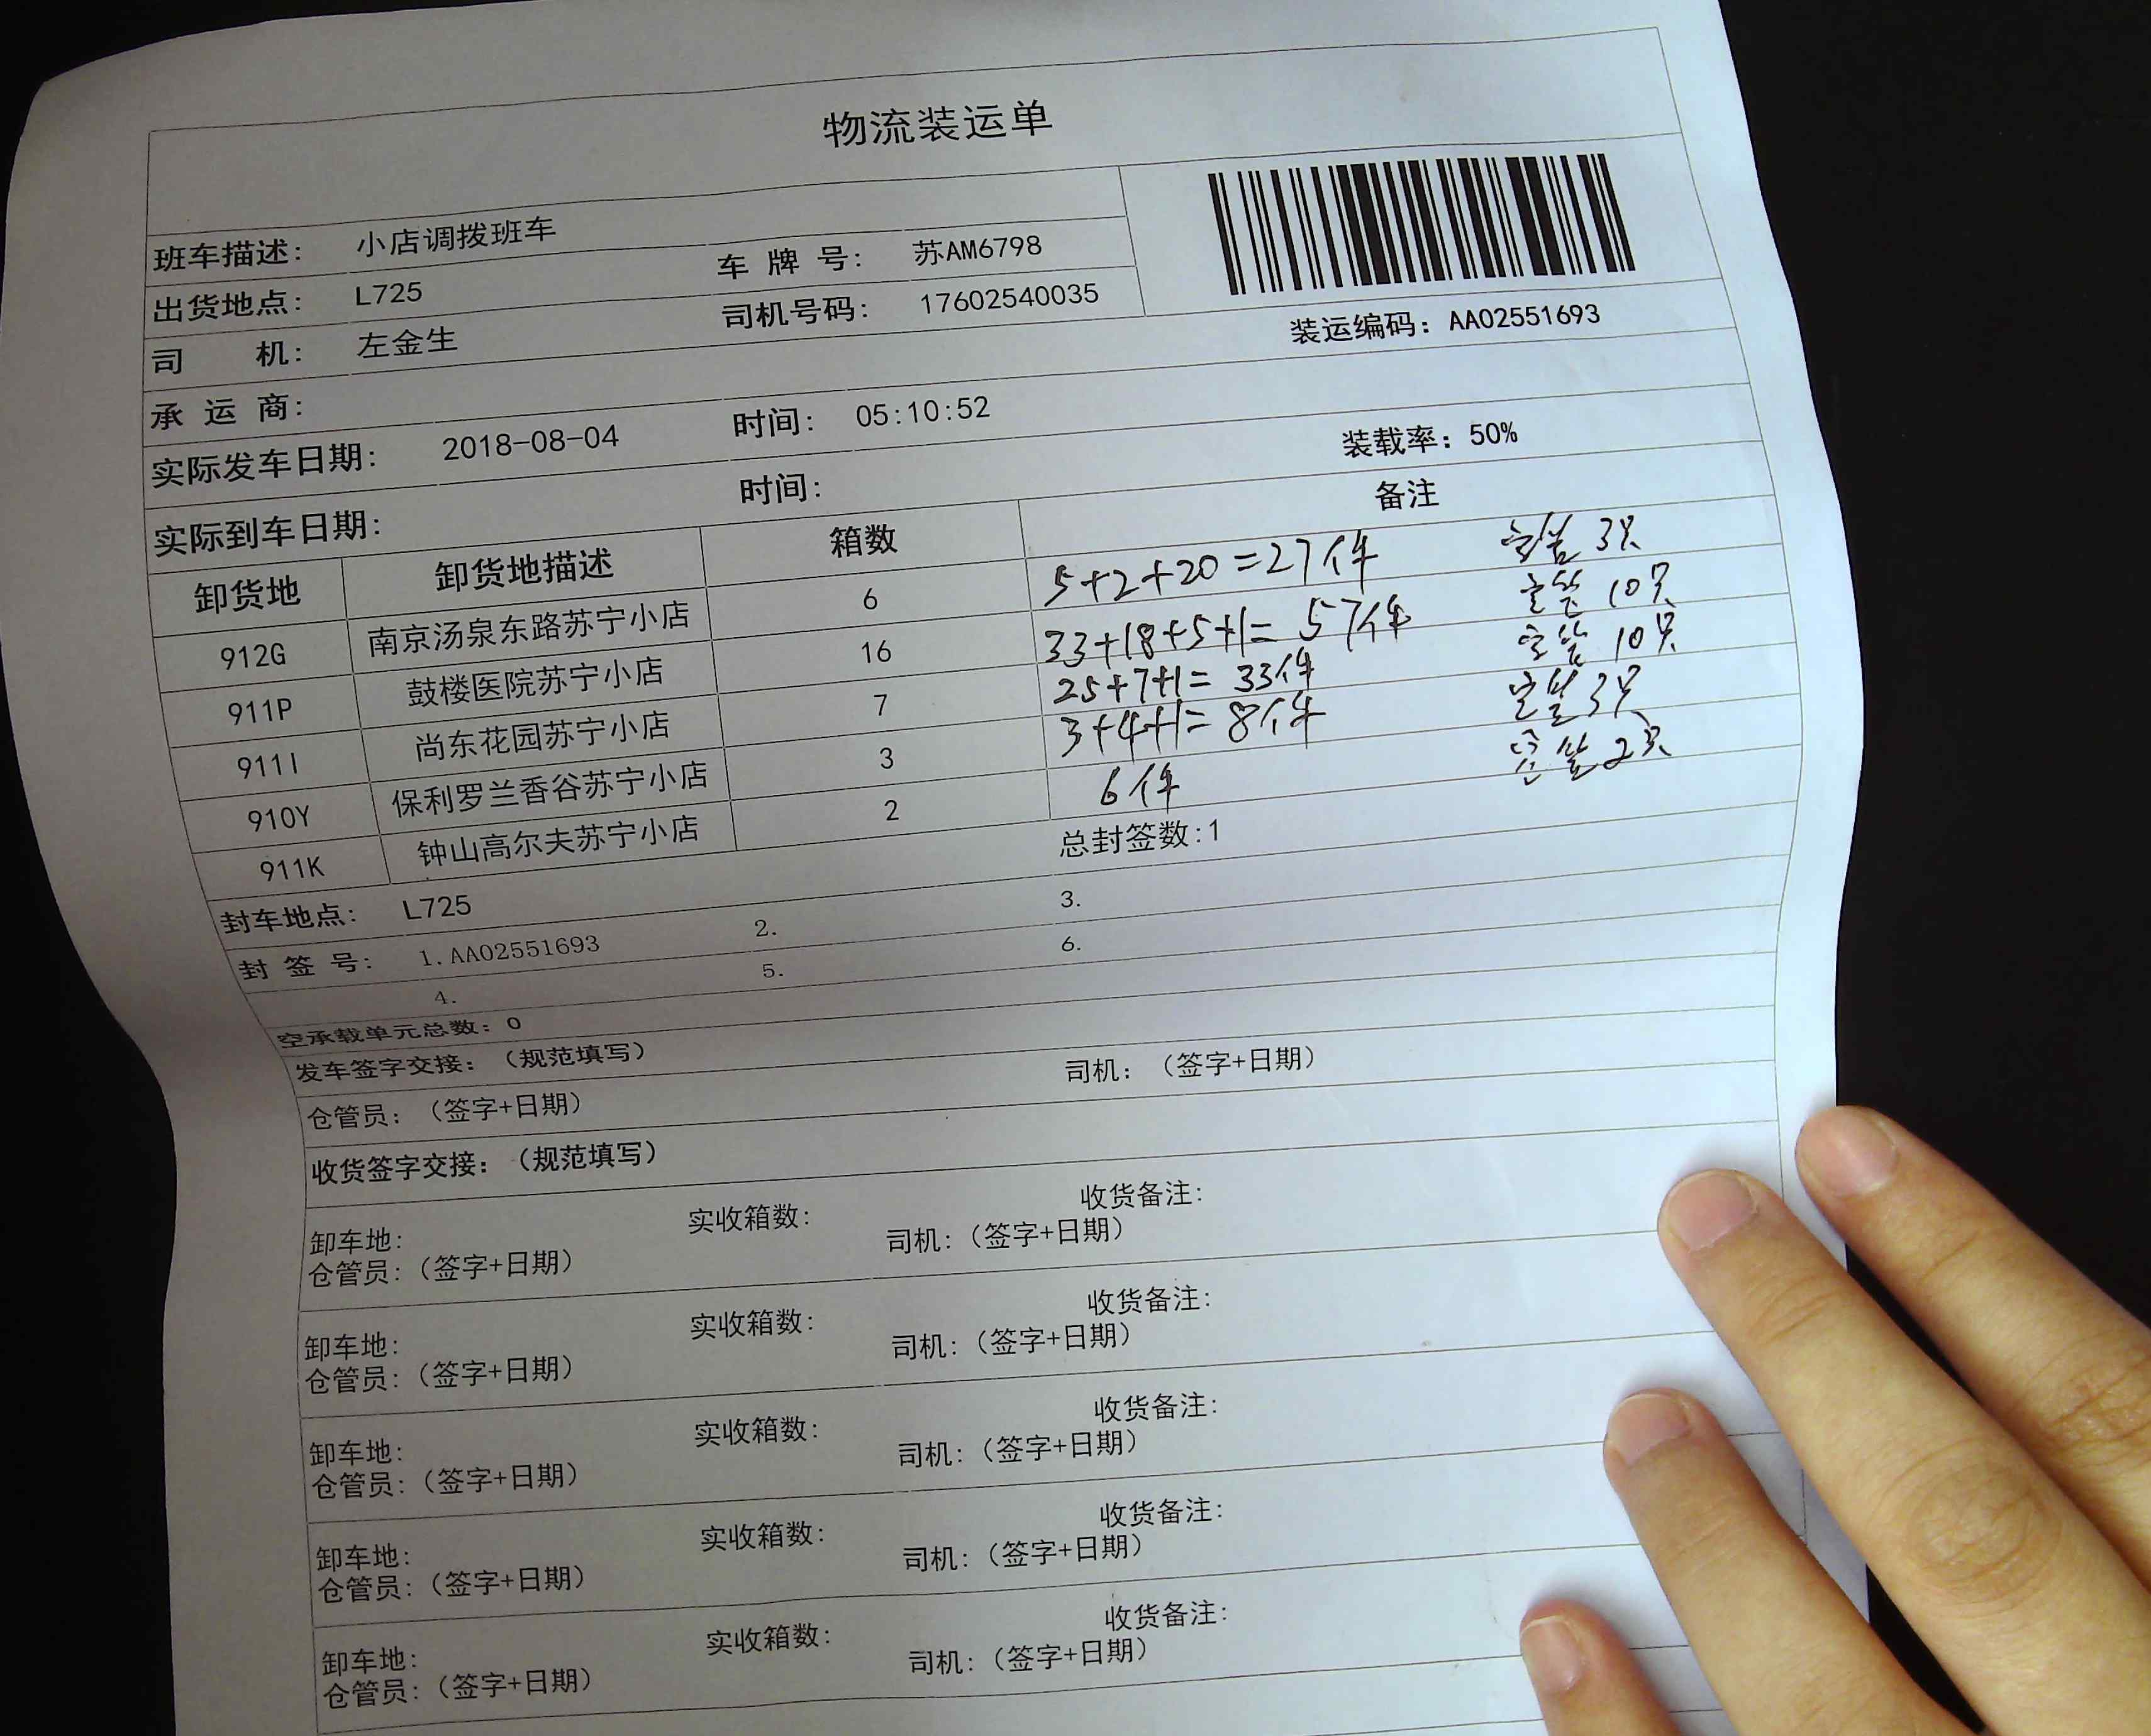 物流装运单
班车描述: 小店调拨班车
出货地点: L725 车 牌 号: 苏AM6798
司 机: 左金生 司机号码: 17602540035
装运编码: AA02551693
承 运 商:
实际发车日期: 2018-08-04 时间: 05:10:52
实际到车日期: 时间: 装载率: 50%
卸货地 卸货地描述 箱数 备注
912G 南京汤泉东路苏宁小店 6 5+2+20=27件 3只
911P 鼓楼医院苏宁小店 16 33+18+5+1=57件 10只
911I 尚东花园苏宁小店 7 25+7+1=33件 10只
910Y 保利罗兰香谷苏宁小店 3 3+4+1=8件 3只
911K 钟山高尔夫苏宁小店 2 6件 2只
封车地点: L725 总封签数:1
封 签 号: 1.AA02551693 2. 3.
4. 5. 6.
空承载单元总数: 0
发车签字交接: (规范填写)
仓管员: (签字+日期) 司机: (签字+日期)
收货签字交接: (规范填写)
卸车地: 实收箱数: 收货备注:
仓管员: (签字+日期) 司机: (签字+日期)
卸车地: 实收箱数: 收货备注:
仓管员: (签字+日期) 司机: (签字+日期)
卸车地: 实收箱数: 收货备注:
仓管员: (签字+日期) 司机: (签字+日期)
卸车地: 实收箱数: 收货备注:
仓管员: (签字+日期) 司机: (签字+日期)
卸车地: 实收箱数: 收货备注:
仓管员: (签字+日期) 司机: (签字+日期)